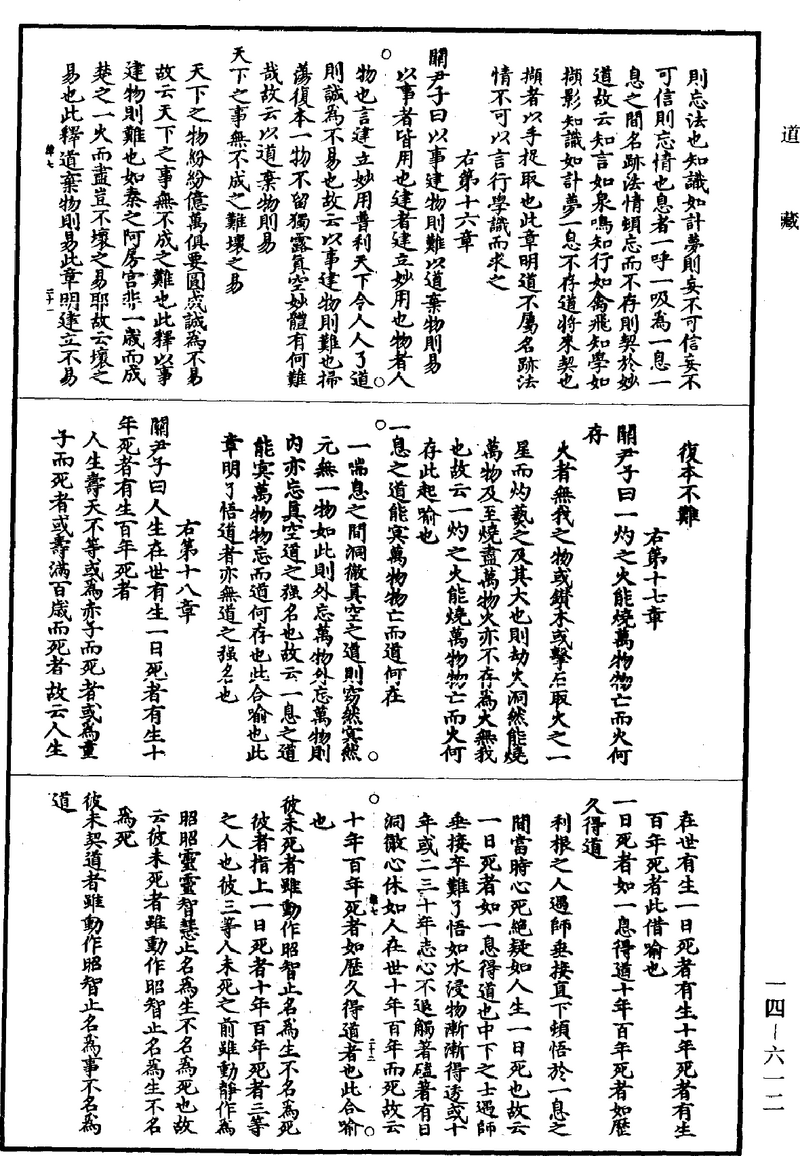 道藏
則忘法也知識如計夢則妄不可信妄不
可信則忘情也息者一呼一吸為一息一
息之間名跡法情頓忘而不存則契於妙
道故云知言如泉鳴知行如禽飛知學如
擷影知識如計夢一息不存道將來契也
擷者以手捉取也此章明道不屬名跡法
情不可以言行學識而求之
右第十六章
關尹子曰以事建物則難以道棄物則易
以事者皆用也建者建立妙用也物者人
物也言建立妙用普利天下令人人了道
則誠為不易也故云以事建物則難也掃
蕩復本一物不留獨露真空妙體有何難
哉故云以道棄物則易
天下之事無不成之難壞之易
天下之物紛紛億萬俱要圓成誠為不易
故云天下之事無不成之難也此釋以事
建物則難也如秦之阿房宮非一歲而成
焚之一火而盡豈不壞之易耶故云壞之
易也此釋道棄物則易此章明建立不易
復本不難
右第十七章
關尹子曰一灼之火能燒萬物物亡而火何
存
火者無我之物或鑽木或擊石取火之一
星而灼爇之及其大也則劫火洞然能燒
萬物及至燒盡萬物火亦不存為火無我
也故云一灼之火能燒萬物物亡而火何
存此起喻也
一息之道能冥萬物物亡而道何在
一喘息之間洞徹真空之道則窈然冥然
元無一物如此則外忘萬物外忘萬物則
內亦忘真空道之强名也故云一息之道
能冥萬物物忘而道何存也此合喻也此
章明了悟道者亦無道之强名也
右第十八章
關尹子曰人生在世有生一日死者有生十
年死者有生百年死者
人生壽夭不等或為赤子而死者或為童
子而死者或壽滿百歲而死者故云人生
在世有生一日死者有生十年死者有生
百年死者此借喻也
一日死者如一息得道十年百年死者如歷
久得道
利根之人遇師垂接直下頓悟於一息之
間當時心死絕疑如人生一日死也故云
一日死者如一息得道也中下之士遇師
垂接卒難了悟如水浸物漸漸得透或十
年或二三十年志心不退觸著磕著有日
洞徹心休如人在世十年百年而死故云
十年百年死者如歷久得道者也此合喻
也
彼未死者雖動作昭智止名為生不名為死
彼者指上一日死者十年百年死者三等
之人也彼三等人未死之前雖動靜作為
昭昭靈靈智慧止名為生不名為死也故
云彼未死者雖動作昭智止名為生不名
為死
彼未契道者雖動作昭智止名為事不名為
道
一四－六一二